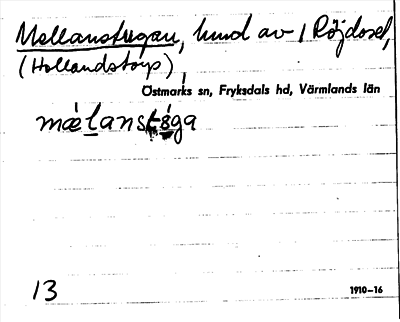 Mellanstugan, hmd av / Röjdosel,
(Hollandstorp)
Östmarks sn, Fryksdals hd, Värmlands län
mǽlanst
13
1910–16